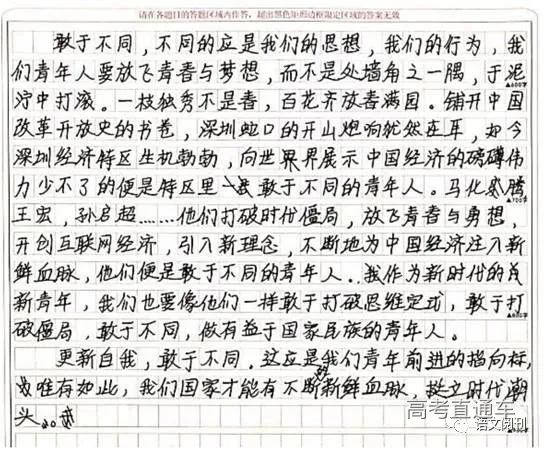 请在各题目的答题区域内作答,超出黑色矩形边框限定区域的答案无效
敢于不同,不同的应是我们的思想,我们的行为,我
们青年人要放飞青春与梦想,而不是处墙角之一隅,于泥
泞中打滚。一枝独秀不是春,百花齐放春满园。铺开中国
▲600字
改革开放史的书卷,深圳蛇口的开山炮响犹然在耳,如今
深圳经济特区生机勃勃,向世界展示中国经济的磅礴伟
力少不了的便是特区里敢于不同的青年人。马化腾
▲700字
王宏,孙启超……他们打破时代僵局,放飞青春与勇想,
开创互联网经济,引入新理念,不断地为中国经济注入新
鲜血脉,他们便是敢于不同的青年人。我作为新时代的
新青年,我们也要像他们一样敢于打破思维定式,敢于打
▲800字
破僵局,敢于不同,做有益于国家民族的青年人。
更新自我,敢于不同。这应是我们青年前进的指向标,
唯有如此,我们国家才能有不断的新鲜血脉,挺立时代潮
头。
高考直通车
语文阅刊